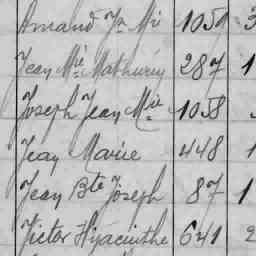 Armand Fs Mie 1051 3
Jean Mie Mathurin 287 1
Joseph Jean Mie 1058
Jean Marie 448 1
Jean Bte Joseph 87 1
Victor Hyacinthe 641 2